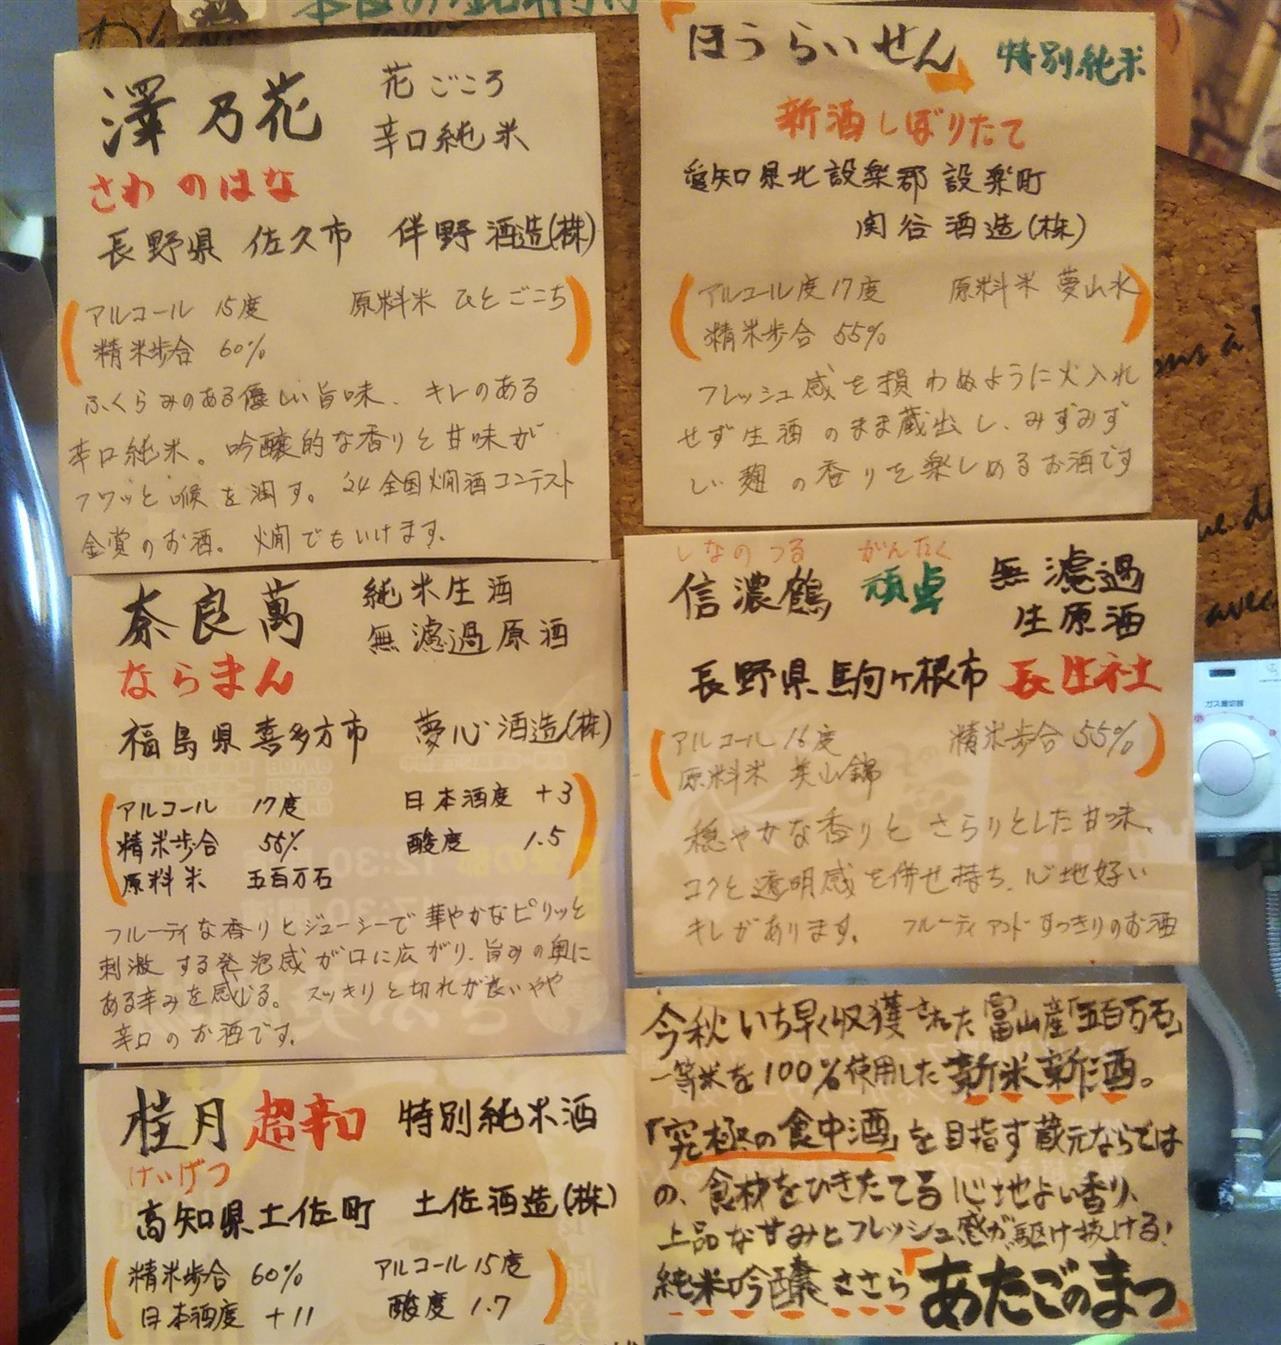 澤乃花 花ごころ
辛口純米
さわのはな
長野県 佐久市 伴野酒造(株)
アルコール 15度 原料米 ひとごこち
精米歩合 60%
ふくらみのある優しい旨味、キレのある
辛口純米。吟醸的な香りと甘味が
フワッと喉を潤す。24全国燗酒コンテスト
金賞のお酒。燗でもいけます。
奈良萬 純米生酒
無濾過原酒
ならまん
福島県喜多方市 夢心酒造(株)
アルコール 17度 日本酒度 +3
精米歩合 55% 酸度 1.5
原料米 五百万石
フルーティな香りとジューシーで華やかなピリッと
刺激する発泡感が口に広がり、旨みの奥に
ある辛みを感じる。スッキリと切れが良いやや
辛口のお酒です。
桂月 超辛口 特別純米酒
けいげつ
高知県土佐町 土佐酒造(株)
精米歩合 60% アルコール 15度
日本酒度 +11 酸度 1.7
「ほうらいせん」 特別純米
新酒しぼりたて
愛知県北設楽郡設楽町
関谷酒造(株)
アルコール度17度 原料米 夢山水
精米歩合 55%
フレッシュ感を損わぬように火入れ
せず生酒のまま蔵出し、みずみず
しい麹の香りを楽しめるお酒です
しなのつる がんたく
信濃鶴 頑卓 無濾過
生原酒
長野県駒ヶ根市 長生社
アルコール 16度 精米歩合 55%
原料米 美山錦
穏やかな香りとさらりとした甘味、
コクと透明感を併せ持ち、心地好い
キレがあります。 フルーティアンドすっきりのお酒
今秋いち早く収獲された富山産「五百万石」
一等米を100%使用した新米新酒。
「究極の食中酒」を目指す蔵元ならでは
の、食材をひきたてる心地よい香り、
上品な甘みとフレッシュ感が駆け抜ける!
純米吟醸 ささら「あたごのまつ」
ガス量切替